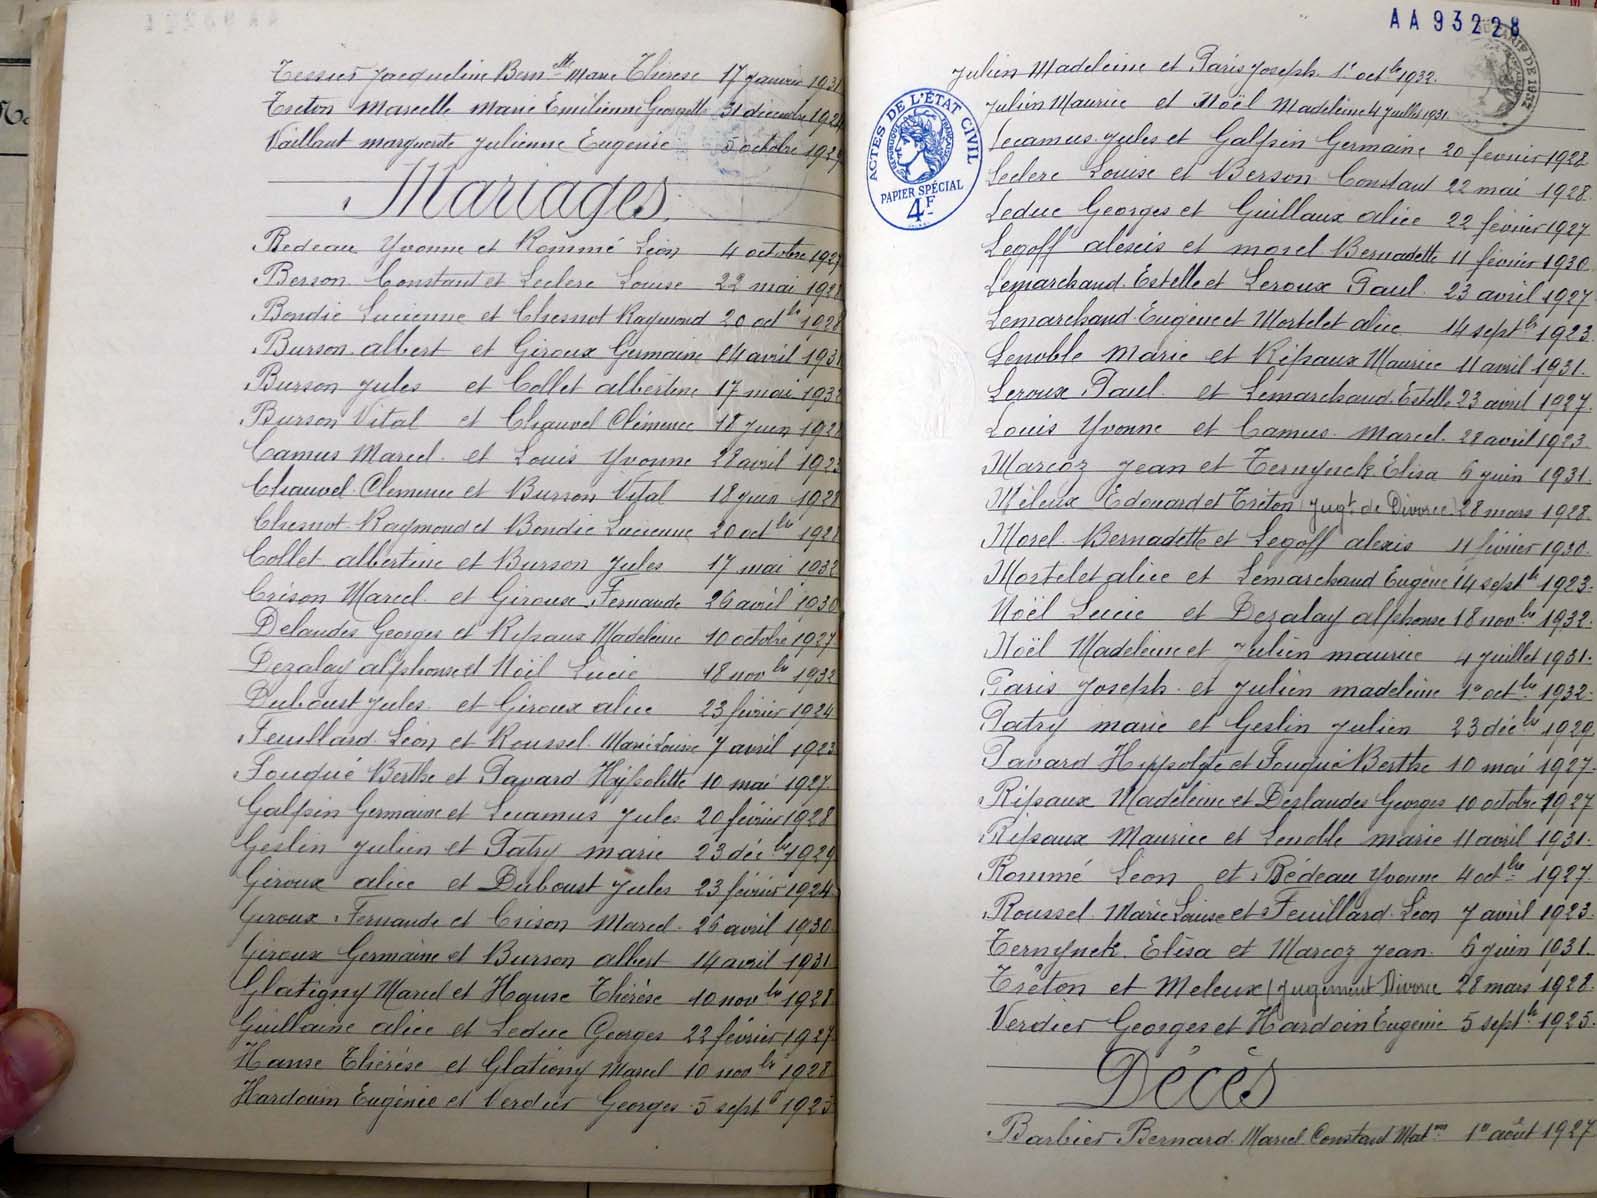 Tessier Jacqueline Bern^tte Marie Thérèse 17 janvier 1931
Tréton Marcelle Marie Emilienne Georgette 31 décembre 192
Vaillant Marguerite Julienne Eugénie 5 octobre 1929
Mariages
Bedeau Yvonne et Rommé Léon 4 octobre 1927
Berson Constant et Leclerc Louise 22 mai 1928
Bondic Lucienne et Chesnot Raymond 20 oct^bre 1928
Burson Albert et Giroux Germaine 14 avril 1931
Burson Jules et Collet Albertine 17 mai 1932
Burson Vital et Chauvel Clémence 18 juin 1928
Camus Marcel et Louis Yvonne 28 avril 1923
Chauvel Clémence et Burson Vital 18 juin 1928
Chesnot Raymond et Bondic Lucienne 20 oct^bre 1928
Collet Albertine et Burson Jules 17 mai 1932
Crison Marcel et Giroux Fernande 26 avril 1930
Delandes Georges et Ripaux Madeleine 10 octobre 1927
Dezalay Alphonse et Noël Lucie 18 nov^bre 1932
Duboust Jules et Giroux Alice 23 février 1924
Feuillard Léon et Roussel Marie Louise 7 avril 1923
Fouqué Berthe et Pavard Hyppolitte 10 mai 1927
Galpin Germaine et Lecamus Jules 20 février 1928
Geslin Julien et Patry Marie 23 déc^bre 1929
Giroux Alice et Duboust Jules 23 février 1924
Giroux Fernande et Crison Marcel 26 avril 1930
Giroux Germaine et Burson Albert 14 avril 1931
Glatigny Marcel et Hanse Thérèse 10 nov^bre 1928
Guillaine Alice et Leduc Georges 22 février 1927
Hanse Thérèse et Glatigny Marcel 10 nov^bre 1928
Hardouin Eugénie et Verdier Georges 5 sept^e 1925
AA93228
ACTES DE L'ÉTAT CIVIL
RÉPUBLIQUE FRANÇAISE
PAPIER SPÉCIAL
4F
Julien Madeleine et Paris Joseph 1^er oct^bre 1932
Julien Maurice et Noël Madeleine 4 juillet 1931
Lecamus Jules et Galpin Germaine 20 février 1928
Leclerc Louise et Berson Constant 22 mai 1928
Leduc Georges et Guillaux Alice 22 février 1927
Legoff Alexis et Morel Bernadette 11 février 1930
Lemarchand Estelle et Leroux Paul 23 avril 1927
Lemarchand Eugène et Mortelet Alice 14 sept^bre 1923
Lenoble Marie et Ripaux Maurice 11 avril 1931
Leroux Paul et Lemarchand Estelle 23 avril 1927
Louis Yvonne et Camus Marcel 28 avril 1923
Marcoz Jean et Ternynck Elisa 6 juin 1931
Méleux Edouard et Tréton (Jug^t de Divorce) 28 mars 1928
Morel Bernadette et Legoff Alexis 11 février 1930
Mortelet Alice et Lemarchand Eugène 14 sept^bre 1923
Noël Lucie et Dezalay Alphonse 18 nov^bre 1932
Noël Madeleine et Julien Maurice 4 juillet 1931
Paris Joseph et Julien Madeleine 1^er oct^bre 1932
Patry Marie et Geslin Julien 23 déc^bre 1929
Pavard Hippolyte et Fouqué Berthe 10 mai 1927
Ripaux Madeleine et Deslandes Georges 10 octobre 1927
Ripaux Maurice et Lenoble Marie 11 avril 1931
Rommé Léon et Bédeau Yvonne 4 oct^bre 1927
Roussel Marie Louise et Feuillard Léon 7 avril 1923
Ternynck Elisa et Marcoz Jean 6 juin 1931
Tréton et Meleux (Jugement Divorce 28 mars 1928
Verdier Georges et Hardoin Eugénie 5 sept^bre 1925
Décès
Barbier Bernard Marcel Constant Mat^in 1^er août 1927